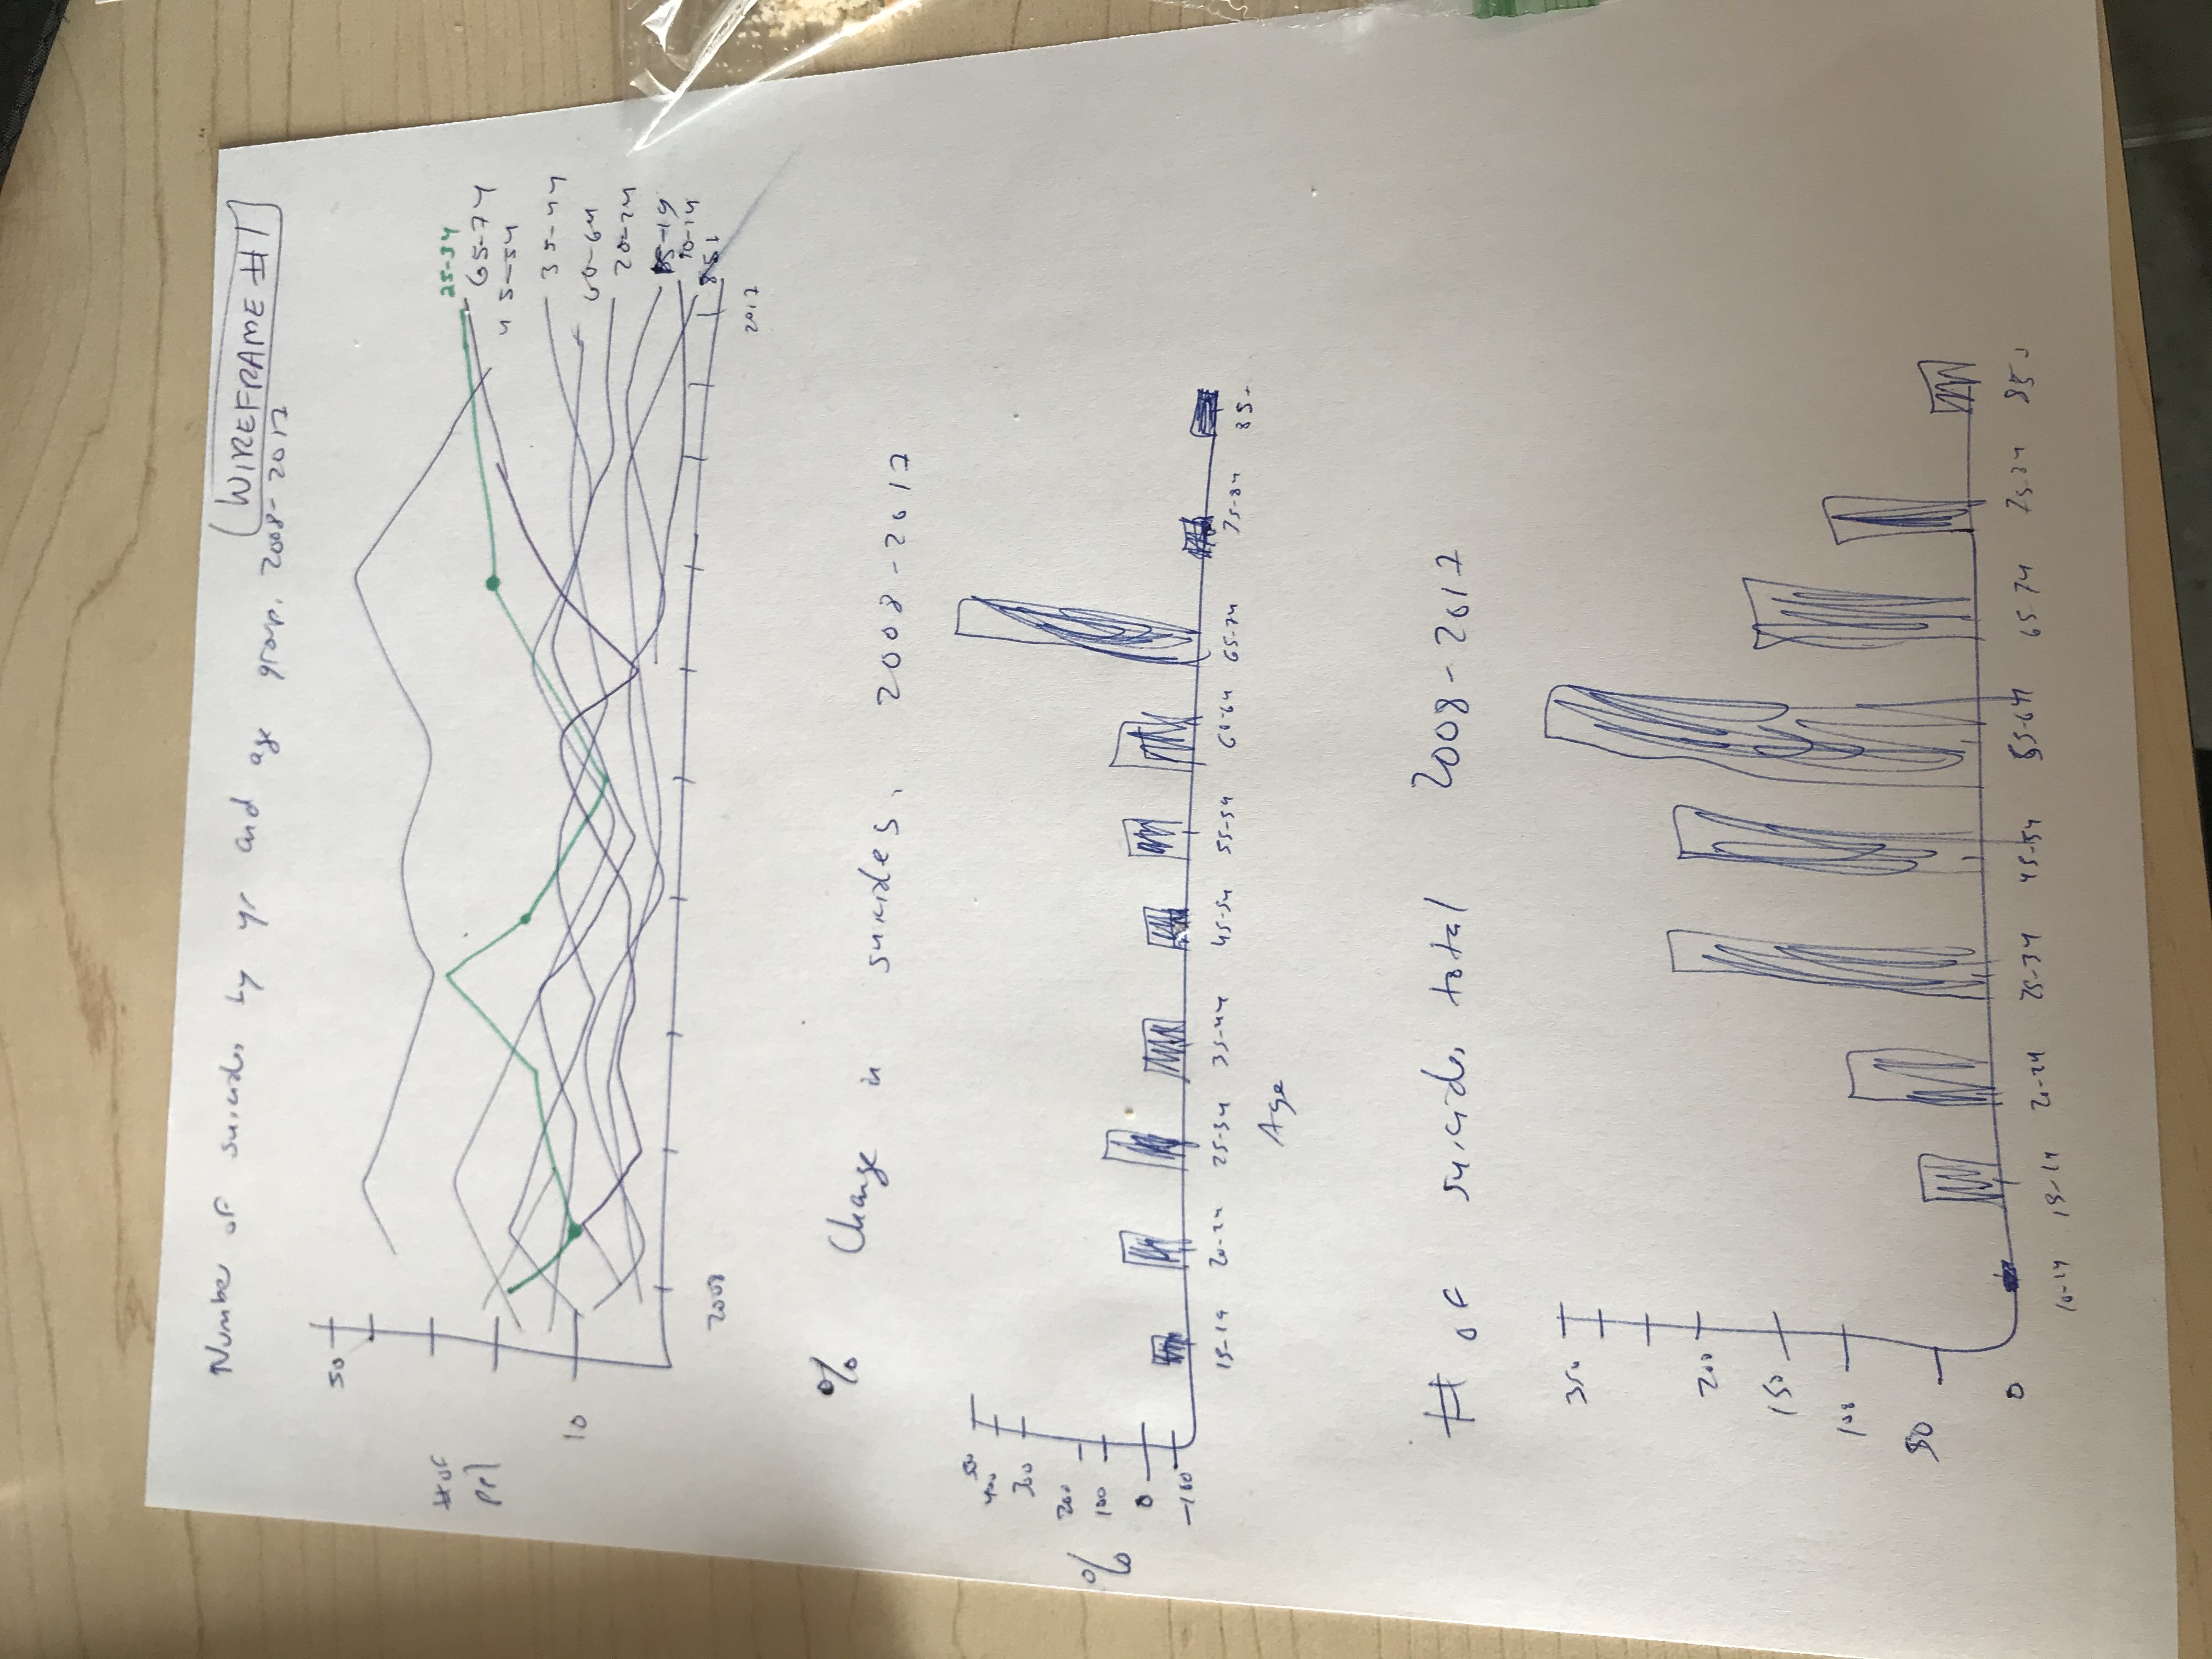 Number of suicides by yr and age group. 2008-2017
WIREFRAME #1
50
# of
ppl
10
25-34
65-74
45-54
35-44
60-64
20-24
15-19
10-14
85+
2008
2017
% Change in suicides, 2008-2017
500
400
300
200
%
100
0
-100
15-19 20-24 25-34 35-44 45-54 55-59 60-64 65-74 75-84 85+
Age
# of suicides total 2008-2017
350
200
150
100
50
0
10-14 15-19 20-24 25-34 45-54 55-64 65-74 75-84 85+